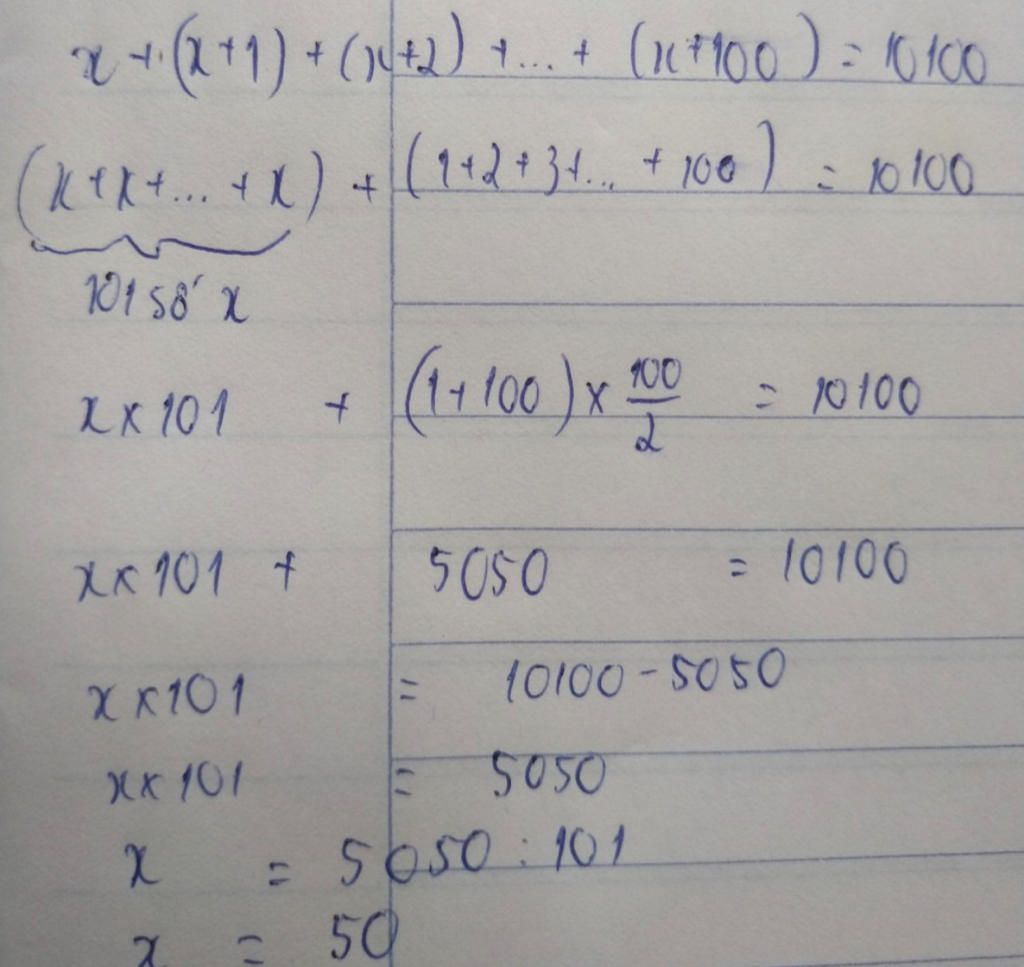 x + (x+1) + (x+2) + ... + (x+100) = 10100
(x+x+...+x) + (1+2+3+...+100) = 10100
101 số x
x×101 + (1+100)×100/2 = 10100
x×101 + 5050 = 10100
x×101 = 10100-5050
x×101 = 5050
x = 5050:101
x = 50